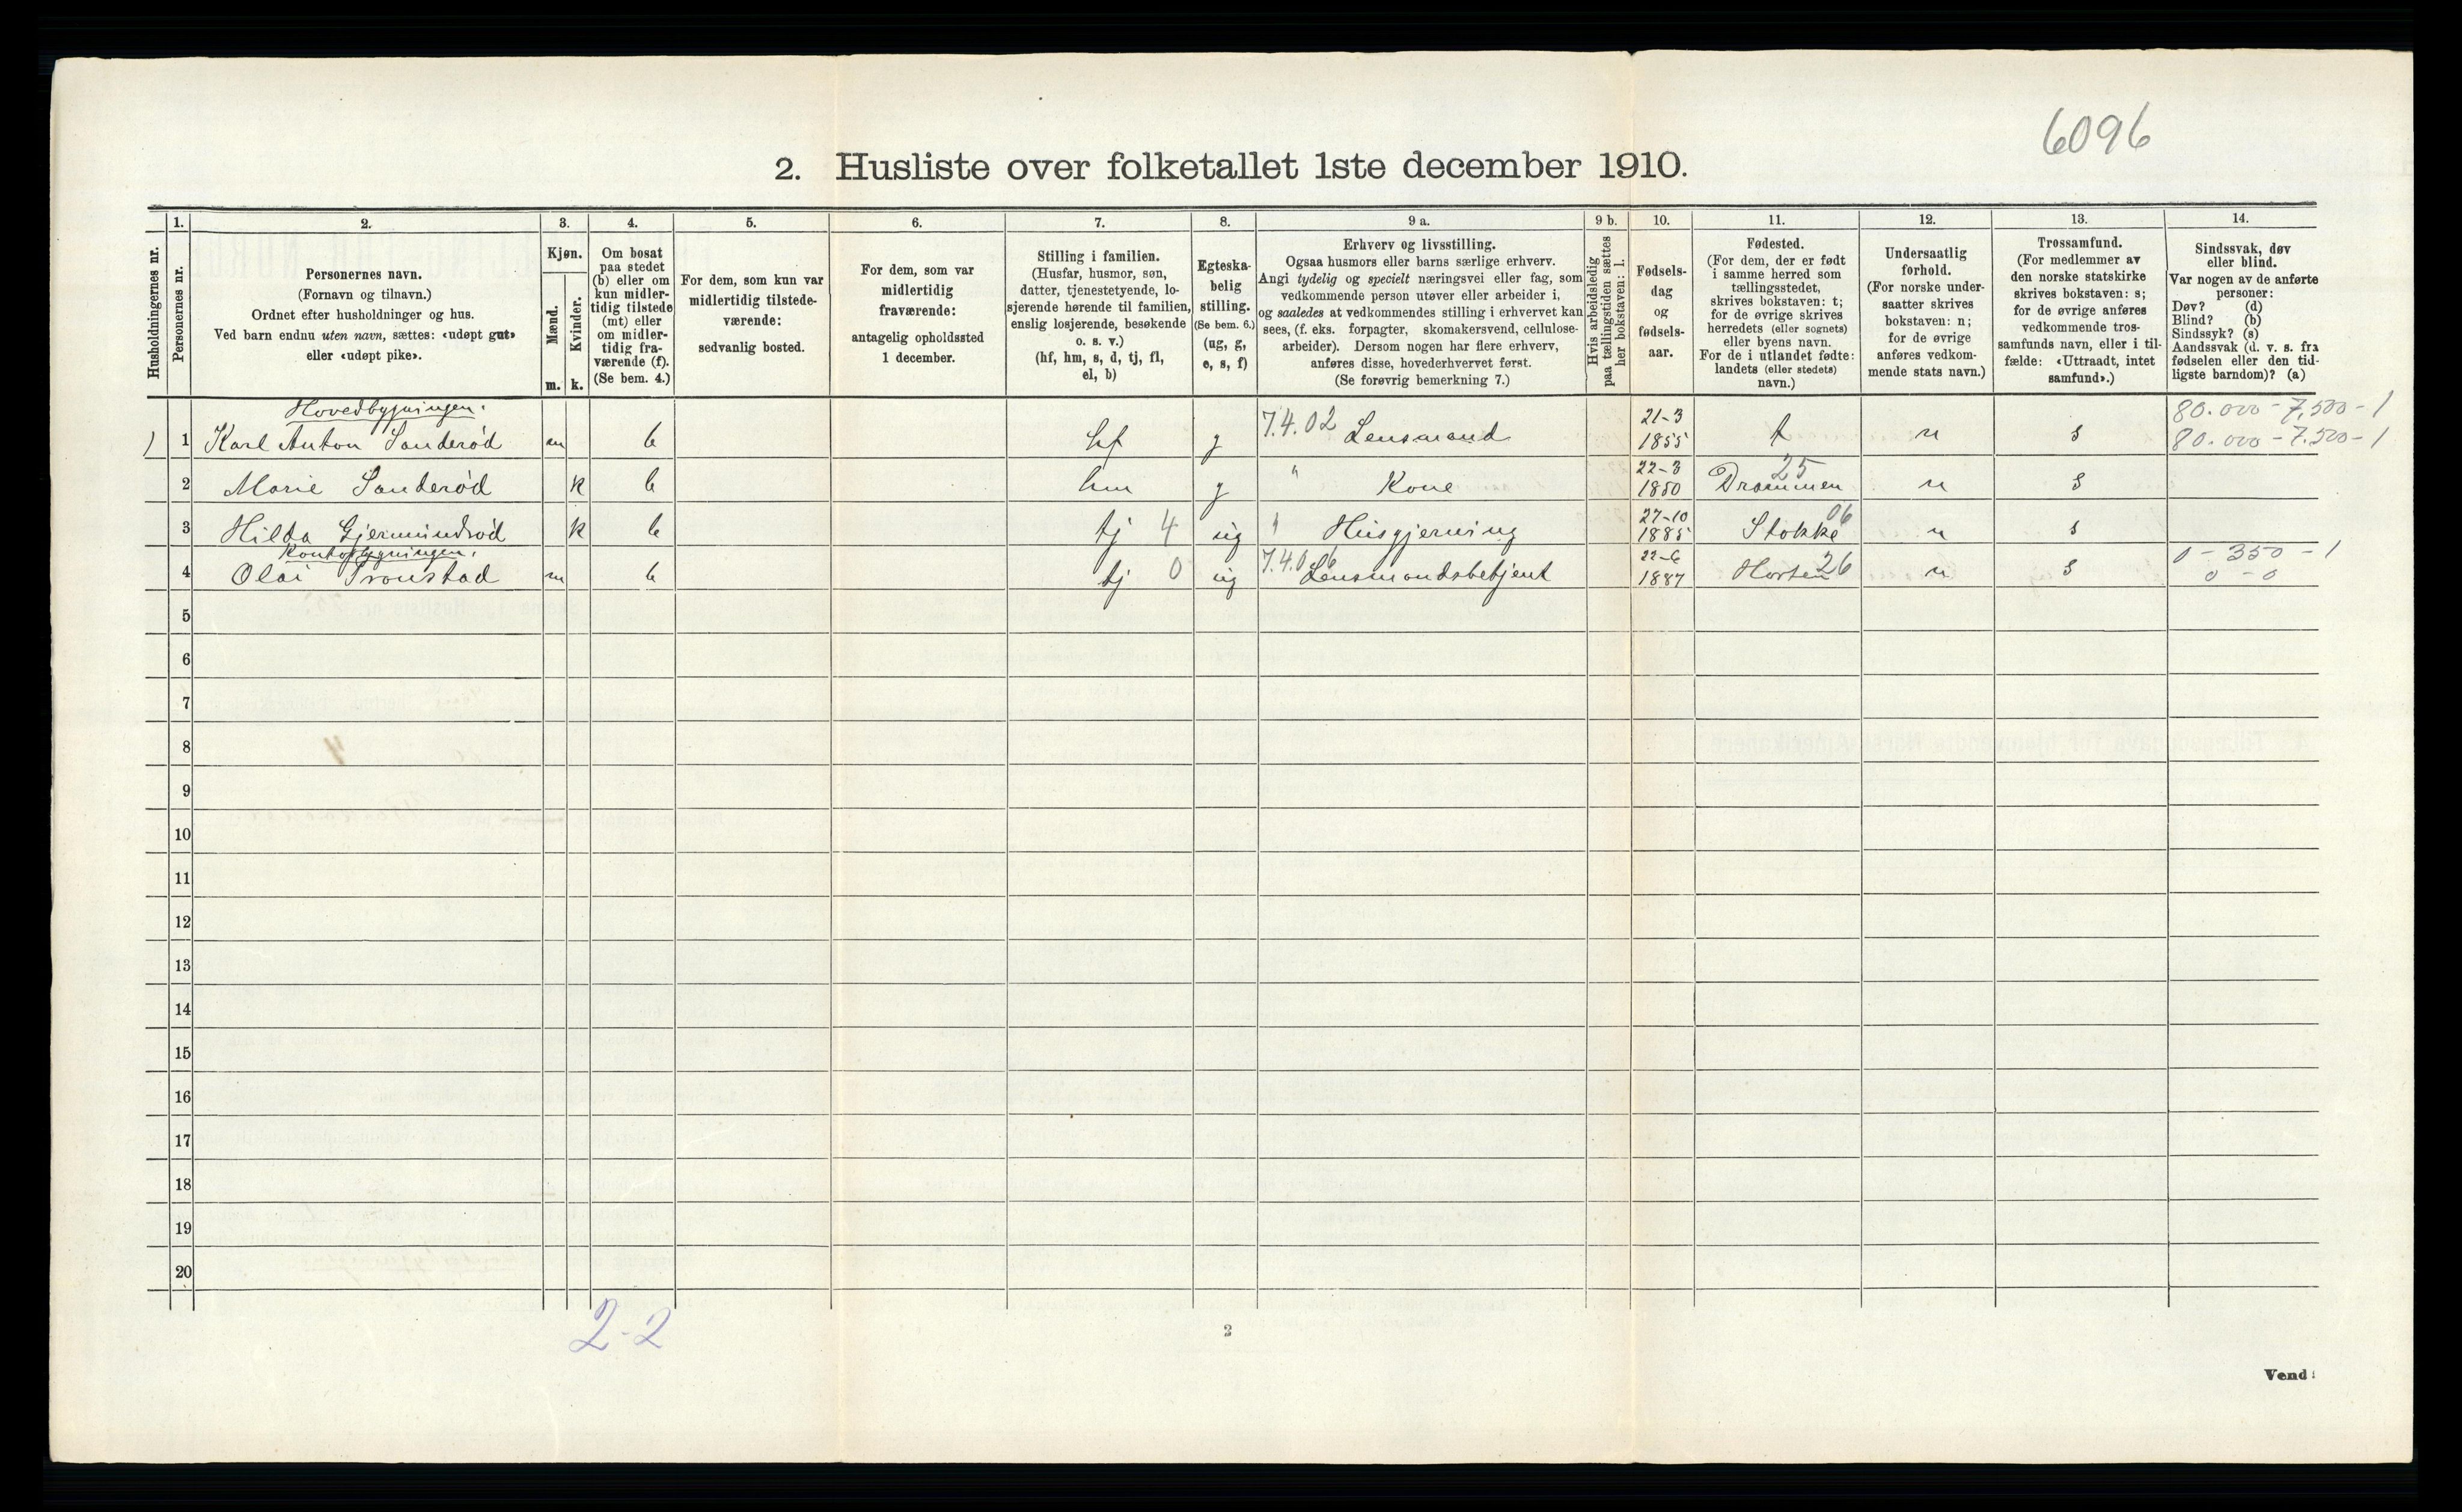 6096
2. Husliste over folketallet 1ste december 1910.
Husholdningernes nr.
1.
Personernes nr.
2.
Personernes navn.
(Fornavn og tilnavn.)
Ordnet efter husholdninger og hus.
Ved barn endnu uten navn, sættes: «udøpt gut»
eller «udøpt pike».
3.
Kjøn.
Mænd.
Kvinder.
m. k.
4.
Om bosat
paa stedet
(b) eller om
kun midler-
tidig tilstede
(mt) eller
om midler-
tidig fra-
værende (f).
(Se bem. 4.)
5.
For dem, som kun var
midlertidig tilstede-
værende:
sedvanlig bosted.
6.
For dem, som var
midlertidig
fraværende:
antagelig opholdssted
1 december.
7.
Stilling i familien.
(Husfar, husmor, søn,
datter, tjenestetyende, lo-
sjerende hørende til familien,
enslig losjerende, besøkende
o. s. v.)
(hf, hm, s, d, tj, fl,
el, b)
8.
Egteska-
belig
stilling.
(Se bem. 6.)
(ug, g,
e, s, f)
9 a.
Erhverv og livsstilling.
Ogsaa husmors eller barns særlige erhverv.
Angi tydelig og specielt næringsvei eller fag, som
vedkommende person utøver eller arbeider i,
og saaledes at vedkommendes stilling i erhvervet kan
sees, (f. eks. forpagter, skomakersvend, cellulose-
arbeider). Dersom nogen har flere erhverv,
anføres disse, hovederhvervet først.
(Se forøvrig bemerkning 7.)
9 b.
Hvis arbeidsledig
paa tællingstiden sættes
her bokstaven: l.
10.
Fødsels-
dag
og
fødsels-
aar.
11.
Fødested.
(For dem, der er født
i samme herred som
tællingsstedet,
skrives bokstaven: t;
for de øvrige skrives
herredets (eller sognets)
eller byens navn.
For de i utlandet fødte:
landets (eller stedets)
navn.)
12.
Undersaatlig
forhold.
(For norske under-
saatter skrives
bokstaven: n;
for de øvrige
anføres vedkom-
mende stats navn.)
13.
Trossamfund.
(For medlemmer av
den norske statskirke
skrives bokstaven: s;
for de øvrige anføres
vedkommende tros-
samfunds navn, eller i til-
fælde: «Uttraadt, intet
samfund».)
14.
Sindssvak, døv
eller blind.
Var nogen av de anførte
personer:
Døv? (d)
Blind? (b)
Sindssyk? (s)
Aandssvak (d. v. s. fra
fødselen eller den tid-
ligste barndom)? (a)
Hovedbygningen. 21-3 80.000 - 7,500 - 1
1 1 Karl Anton Sanderød m b hf g 7.4.02 Lensmand 1855 t n s 80.000 - 7.500 - 1
22-3 25
2 Marie Sanderød k b hm g " Kone 1850 Drammen n s
27-10 06
3 Hilda Gjermundsrød k b tj 4 ug " Husgjerning 1885 Stokke n s
Kontorbygningen. 22-6 0 - 350 - 1
4 Olai Tronstad m b tj 0 ug 7.4.06 Lensmandsbetjent 1887 Horten 26 n s 0 - 0
5
6
7
8
9
10
11
12
13
14
15
16
17
18
19
20
2-2
2
Vend!